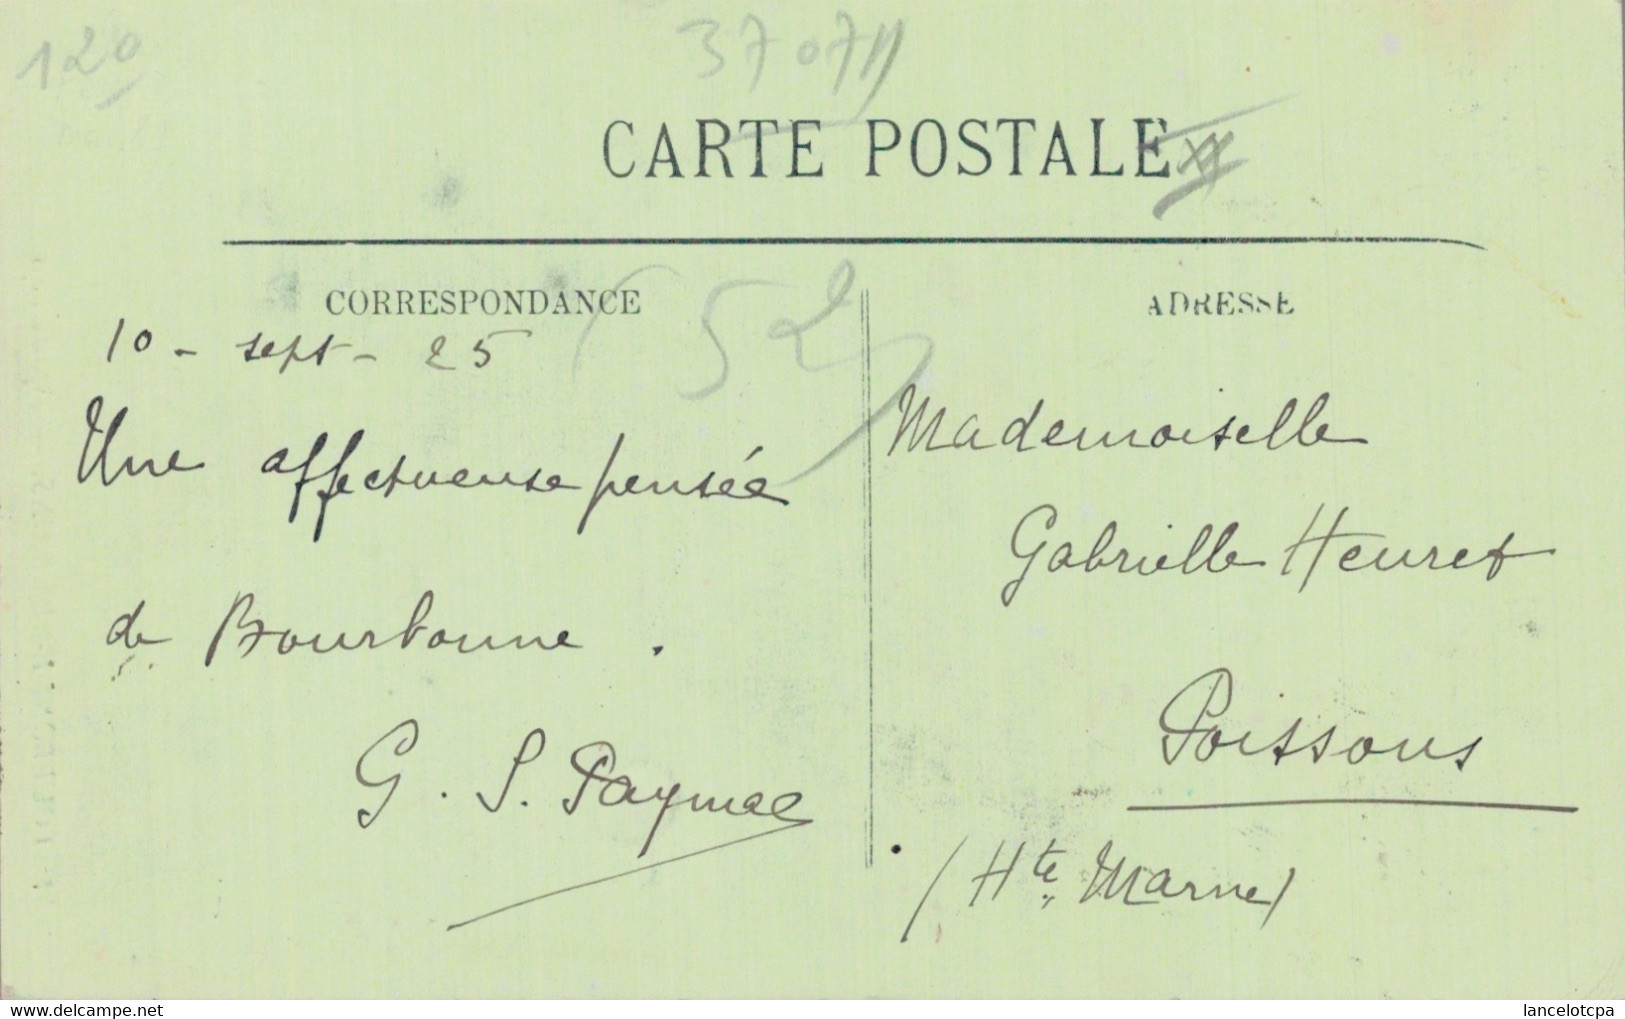 120
37071
CARTE POSTALE
CORRESPONDANCE
10 - sept - 25
Une affectueuse pensée
de Bourbonne.
G. S. Paymal
(52)
ADRESSE
Mademoiselle
Gabrielle Heuret
Poissons
(Hte Marne)
delcampe.net
lancelotcpa